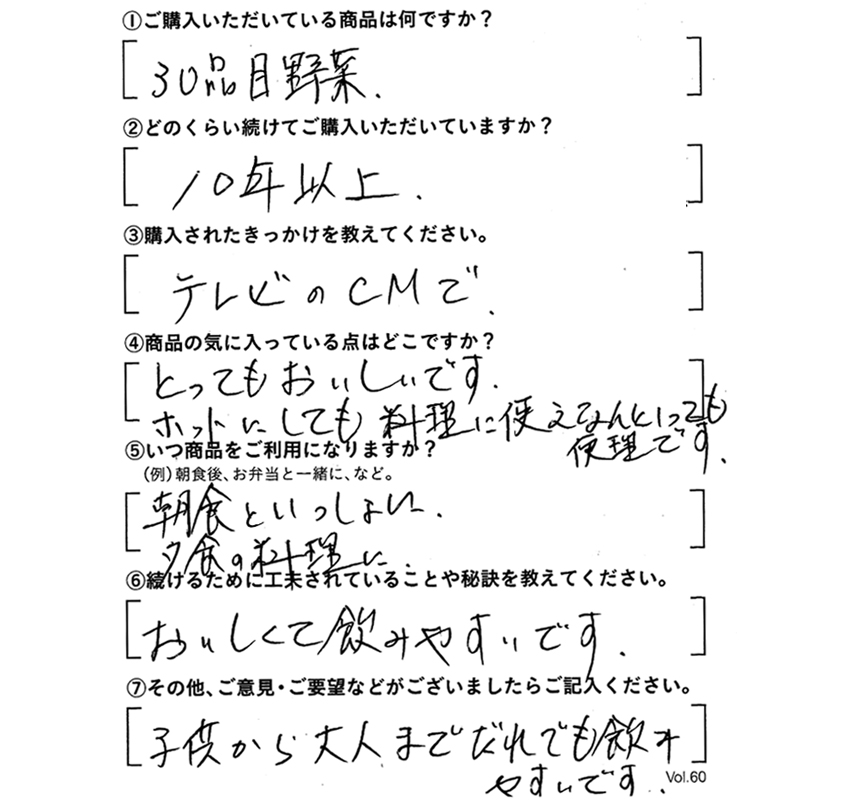 ①ご購入いただいている商品は何ですか？
30品目野菜.
②どのくらい続けてご購入いただいていますか？
10年以上.
③購入されたきっかけを教えてください。
テレビのCMで.
④商品の気に入っている点はどこですか？
とってもおいしいです.
ホットにしても料理に使えなんといっても
便理です.
⑤いつ商品をご利用になりますか？
（例）朝食後、お弁当と一緒に、など。
朝食といっしょに.
夕食の料理に.
⑥続けるために工夫されていることや秘訣を教えてください。
おいしくて飲みやすいです.
⑦その他、ご意見・ご要望などがございましたらご記入ください。
子供から大人までだれでも飲み
やすいです.
Vol.60